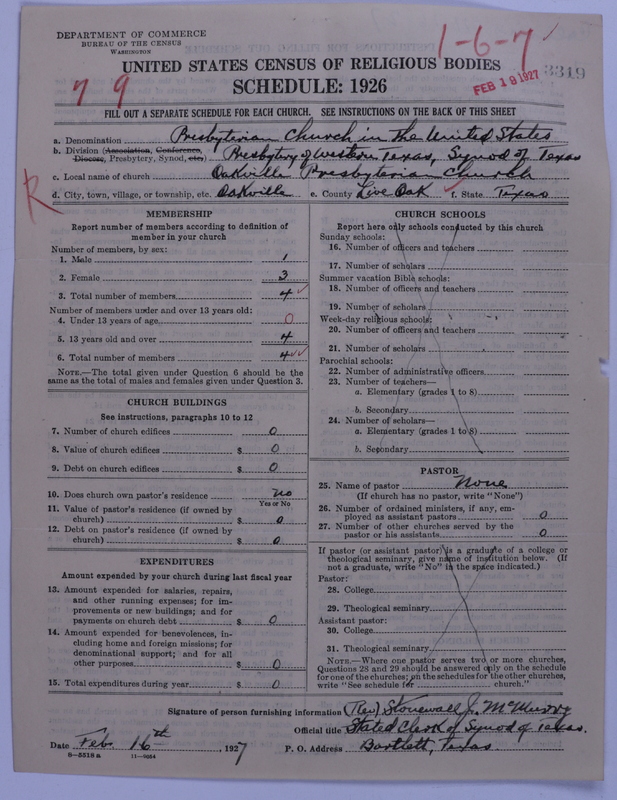 DEPARTMENT OF COMMERCE
BUREAU OF THE CENSUS
WASHINGTON
1-6-7
UNITED STATES CENSUS OF RELIGIOUS BODIES
7 9
SCHEDULE: 1926
FEB 19 1927
3319
FILL OUT A SEPARATE SCHEDULE FOR EACH CHURCH. SEE INSTRUCTIONS ON THE BACK OF THIS SHEET
a. Denomination Presbyterian Church in the United States
b. Division (Association, Conference, Diocese, Presbytery, Synod, etc) Presbytery of Western Texas, Synod of Texas
c. Local name of church Oakville Presbyterian Church
R
d. City, town, village, or township, etc. Oakville e. County Live Oak f. State Texas
MEMBERSHIP
Report number of members according to definition of
member in your church
Number of members, by sex:
1. Male 1
2. Female 3
3. Total number of members 4
Number of members under and over 13 years old:
4. Under 13 years of age 0
5. 13 years old and over 4
6. Total number of members 4
NOTE.—The total given under Question 6 should be the
same as the total of males and females given under Question 3.
CHURCH BUILDINGS
See instructions, paragraphs 10 to 12
7. Number of church edifices 0
8. Value of church edifices $ 0
9. Debt on church edifices $ 0
10. Does church own pastor's residence no
Yes or No
11. Value of pastor's residence (if owned by
church) $ 0
12. Debt on pastor's residence (if owned by
church) $ 0
EXPENDITURES
Amount expended by your church during last fiscal year
13. Amount expended for salaries, repairs,
and other running expenses; for im-
provements or new buildings; and for
payments on church debt $ 0
14. Amount expended for benevolences, in-
cluding home and foreign missions; for
denominational support; and for all
other purposes $ 0
15. Total expenditures during year $ 0
CHURCH SCHOOLS
Report here only schools conducted by this church
Sunday schools:
16. Number of officers and teachers
17. Number of scholars
Summer vacation Bible schools:
18. Number of officers and teachers
19. Number of scholars
Week-day religious schools:
20. Number of officers and teachers
21. Number of scholars
Parochial schools:
22. Number of administrative officers
23. Number of teachers—
a. Elementary (grades 1 to 8)
b. Secondary
24. Number of scholars—
a. Elementary (grades 1 to 8)
b. Secondary
PASTOR
25. Name of pastor None
(If church has no pastor, write "None")
26. Number of ordained ministers, if any, em-
ployed as assistant pastors 0
27. Number of other churches served by the
pastor or his assistants 0
If pastor (or assistant pastor) is a graduate of a college or
theological seminary, give name of institution below. (If
not a graduate, write "No" in the space indicated.)
Pastor:
28. College
29. Theological seminary
Assistant pastor:
30. College
31. Theological seminary
NOTE.—Where one pastor serves two or more churches,
Questions 28 and 29 should be answered only on the schedule
for one of the churches; on the schedules for the other churches,
write "See schedule for church."
Signature of person furnishing information (Rev) Stonewall J. McMurry
Official title Stated Clerk of Synod of Texas.
Date Feb. 16th, 1927
P. O. Address Bartlett, Texas
8-5518 a
11-9054